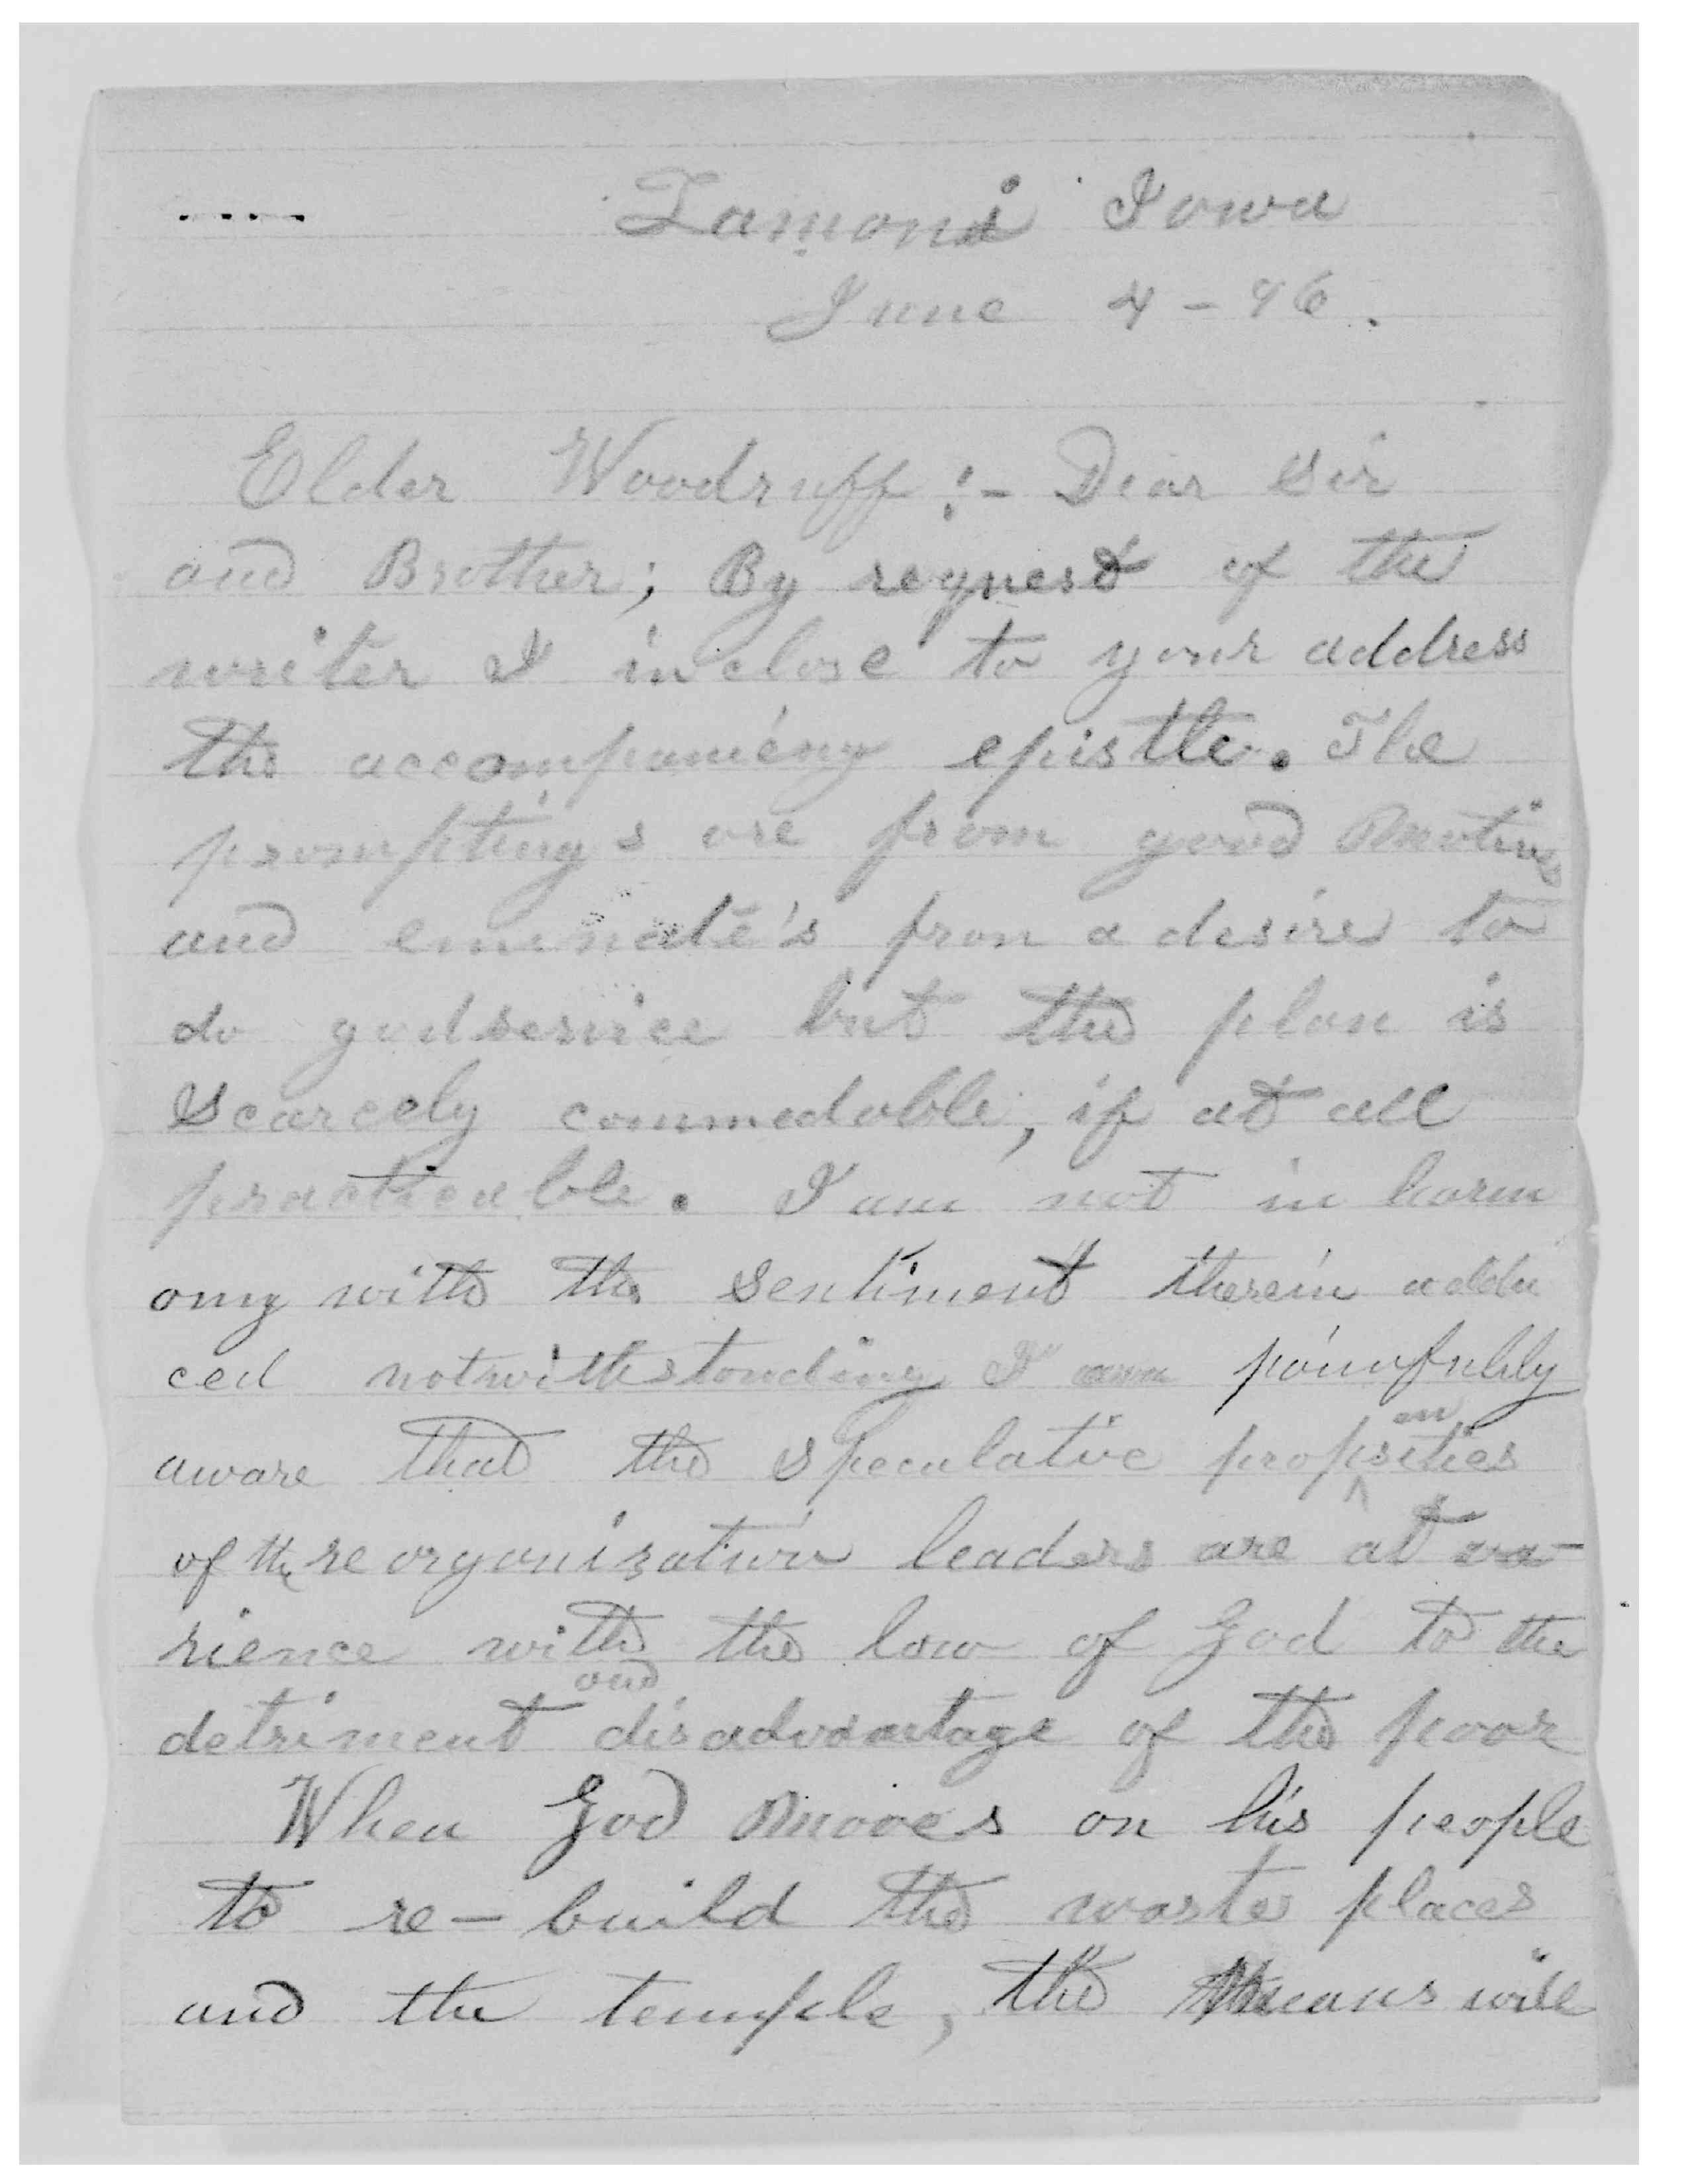 Lamoni Iowa
June 4 - 96.
Elder Woodruff:- Dear Sir
and Brother; By request of the
writer I inclose to your address
the accompanieng epistle. The
promptings are from good Motives
and eminate's from a desire to
do godservice but the plan is
Scarcely commedable, if at all
practicable. I am not in harm
ony with the Sentiment therein addu
ced notwithstanding I am painfully
aware that the Speculative propensities
of the reorganization leaders are at va-
rience with the law of God to the
detriment and disadvantage of the poor
When God Mooves on his people
to re-build the waste places
and the temple, the Means will